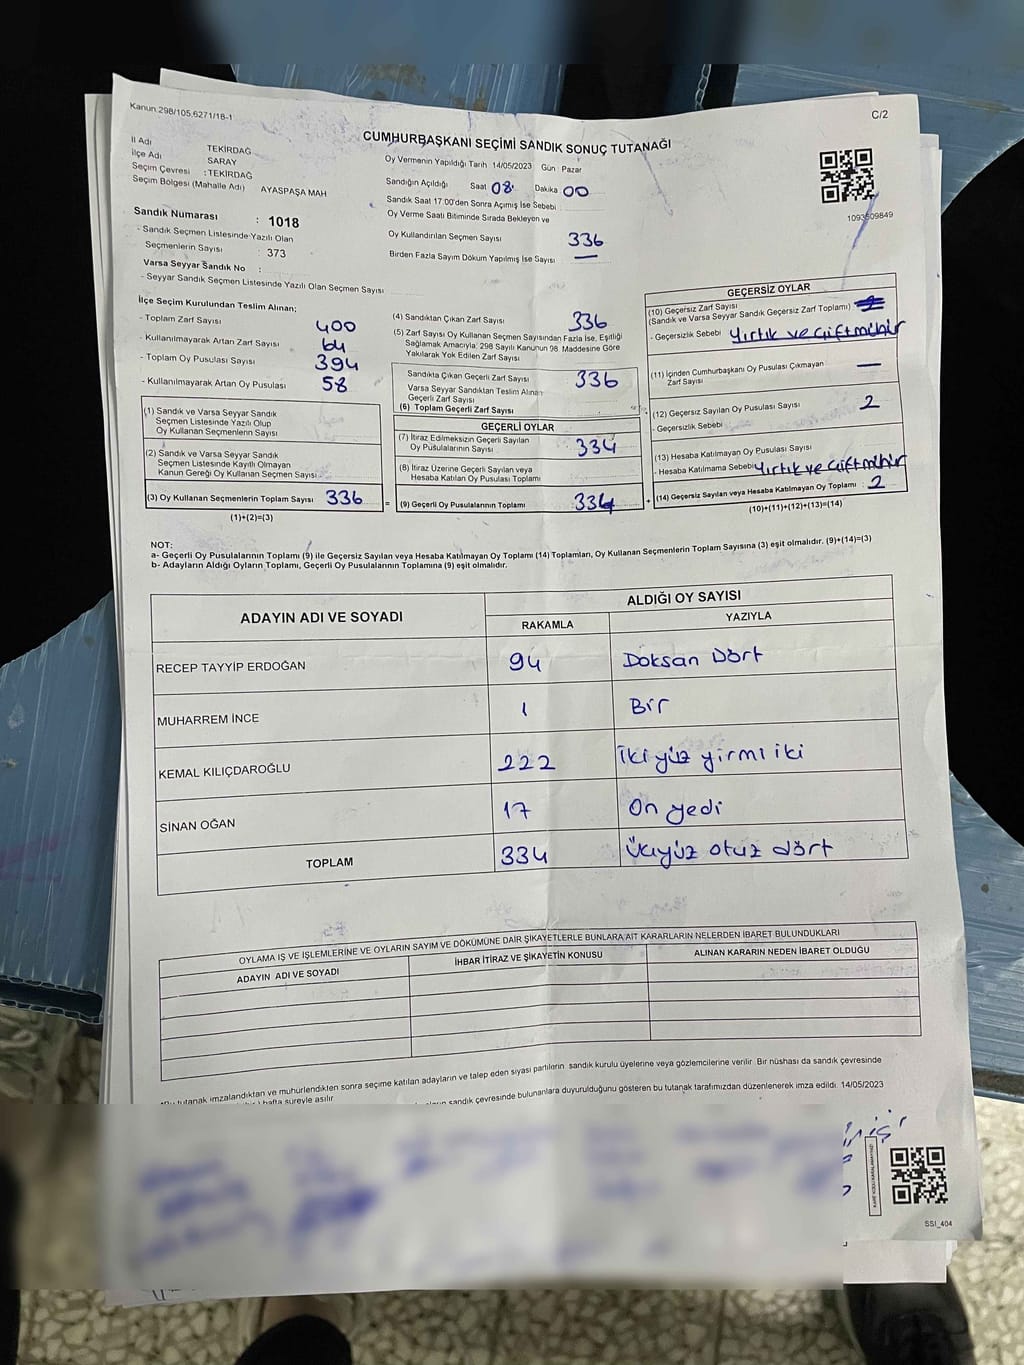 Kanun.298/105,6271/18-1
C/2
CUMHURBAŞKANI SEÇİMİ SANDIK SONUÇ TUTANAĞI
İl Adı TEKİRDAĞ
İlçe Adı SARAY
Seçim Çevresi :TEKİRDAĞ
Seçim Bölgesi (Mahalle Adı) AYASPAŞA MAH
Sandık Numarası : 1018
- Sandık Seçmen Listesinde Yazılı Olan
Seçmenlerin Sayısı : 373
Varsa Seyyar Sandık No :
- Seyyar Sandık Seçmen Listesinde Yazılı Olan Seçmen Sayısı
Oy Vermenin Yapıldığı Tarih 14/05/2023 Gün : Pazar
Sandığın Açıldığı Saat 08 Dakika 00
Sandık Saat 17:00'den Sonra Açımış İse Sebebi
Oy Verme Saati Bitiminde Sırada Bekleyon ve
Oy Kullandırılan Seçmen Sayısı 336
Birden Fazla Sayım Döküm Yapılmış İse Sayısı —
1093509849
İlçe Seçim Kurulundan Teslim Alınan;
- Toplam Zarf Sayısı 400
- Kullanılmayarak Artan Zarf Sayısı 64
- Toplam Oy Pusulası Sayısı 394
- Kullanılmayarak Artan Oy Pusulası 58
(1) Sandık ve Varsa Seyyar Sandık
Seçmen Listesinde Yazılı Olup
Oy Kullanan Seçmenlerin Sayısı
(2) Sandık ve Varsa Seyyar Sandık
Seçmen Listesinde Kayıtlı Olmayan
Kanun Gereği Oy Kullanan Seçmen Sayısı
(3) Oy Kullanan Seçmenlerin Toplam Sayısı 336
(1)+(2)=(3)
(4) Sandıktan Çıkan Zarf Sayısı 336
(5) Zarf Sayısı Oy Kullanan Seçmen Sayısından Fazla İse, Eşitliği
Sağlamak Amacıyla; 298 Sayılı Kanunun 98. Maddesine Göre
Yakılarak Yok Edilen Zarf Sayısı
Sandıkta Çıkan Geçerli Zarf Sayısı 336
Varsa Seyyar Sandıktan Teslim Alınan
Geçerli Zarf Sayısı
(6) Toplam Geçerli Zarf Sayısı
GEÇERLİ OYLAR
(7) İtiraz Edilmeksizin Geçerli Sayılan
Oy Pusulalarının Sayısı 334
(8) İtiraz Üzerine Geçerli Sayılan veya
Hesaba Katılan Oy Pusulası Toplamı
= (9) Geçerli Oy Pusulalarının Toplamı 334 +
GEÇERSİZ OYLAR
(10) Geçersiz Zarf Sayısı
(Sandık ve Varsa Seyyar Sandık Geçersiz Zarf Toplamı)
- Geçersizlik Sebebi : Yırtık ve Çiftmühür
(11) İçinden Cumhurbaşkanı Oy Pusulası Çıkmayan
Zarf Sayısı —
(12) Geçersiz Sayılan Oy Pusulası Sayısı 2
- Geçersizlik Sebebi
(13) Hesaba Katılmayan Oy Pusulası Sayısı
- Hesaba Katılmama Sebebi Yırtık ve Çiftmühür
(14) Geçersiz Sayılan veya Hesaba Katılmayan Oy Toplamı : 2
(10)+(11)+(12)+(13)=(14)
NOT:
a- Geçerli Oy Pusulalarının Toplamı (9) ile Geçersiz Sayılan veya Hesaba Katılmayan Oy Toplamı (14) Toplamları, Oy Kullanan Seçmenlerin Toplam Sayısına (3) eşit olmalıdır. (9)+(14)=(3)
b- Adayların Aldığı Oyların Toplamı, Geçerli Oy Pusulalarının Toplamına (9) eşit olmalıdır.
ADAYIN ADI VE SOYADI
ALDIĞI OY SAYISI
RAKAMLA YAZIYLA
RECEP TAYYİP ERDOĞAN 94 Doksan Dört
MUHARREM İNCE 1 Bir
KEMAL KILIÇDAROĞLU 222 İki yüz yirmi iki
SİNAN OĞAN 17 On yedi
TOPLAM 334 Üçyüz otuz dört
OYLAMA İŞ VE İŞLEMLERİNE VE OYLARIN SAYIM VE DÖKÜMÜNE DAİR ŞİKAYETLERLE BUNLARA AİT KARARLARIN NELERDEN İBARET BULUNDUKLARI
ADAYIN ADI VE SOYADI
İHBAR İTİRAZ VE ŞİKAYETİN KONUSU
ALINAN KARARIN NEDEN İBARET OLDUĞU
tutanak imzalandıktan ve mühürlendikten sonra seçime katılan adayların ve talep eden siyasi partilerin sandık kurulu üyelerine veya gözlemcilerine verilir. Bir nüshası da sandık çevresinde
hafta süreyle asılır.
sandık çevresinde bulunanlara duyurulduğunu gösteren bu tutanak tarafımızdan düzenlenerek imza edildi. 14/05/2023
SSI_404